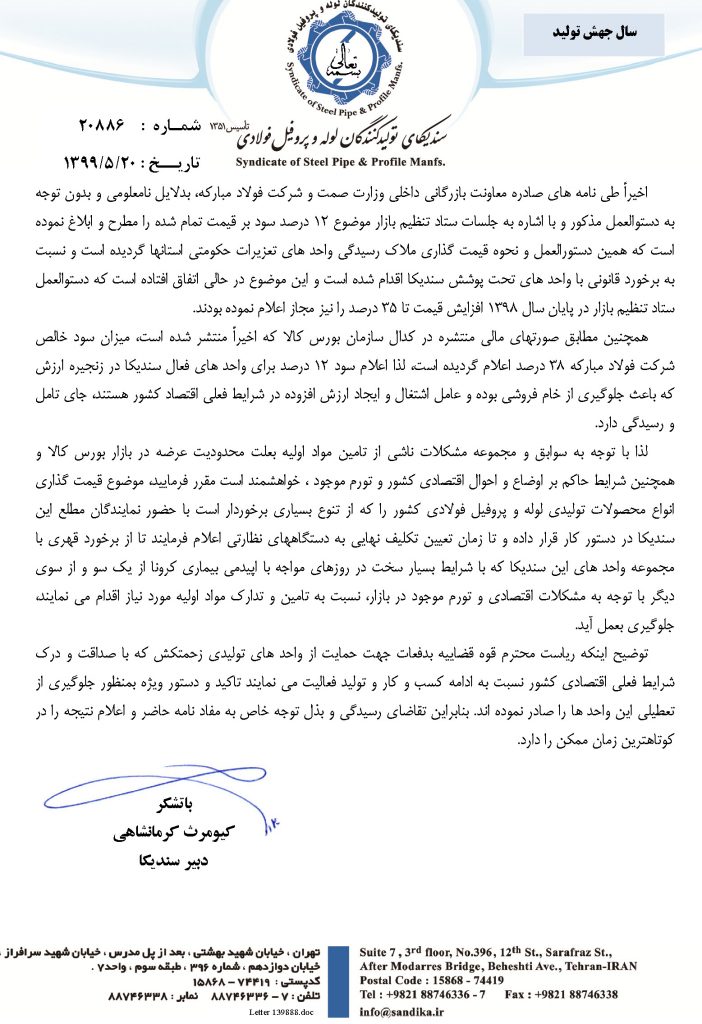 سال جهش تولید
سندیکای تولیدکنندگان لوله و پروفیل فولادی
بسمه تعالی
Syndicate of Steel Pipe & Profile Manfs.
سندیکای تولیدکنندگان لوله و پروفیل فولادی تأسیس ۱۳۵۱
Syndicate of Steel Pipe & Profile Manfs.
شماره : ۲۰۸۸۶
تاریخ : ۱۳۹۹/۵/۲۰
اخیراً طی نامه های صادره معاونت بازرگانی داخلی وزارت صمت و شرکت فولاد مبارکه، بدلایل نامعلومی و بدون توجه
به دستوالعمل مذکور و با اشاره به جلسات ستاد تنظیم بازار موضوع ۱۲ درصد سود بر قیمت تمام شده را مطرح و ابلاغ نموده
است که همین دستورالعمل و نحوه قیمت گذاری ملاک رسیدگی واحد های تعزیرات حکومتی استانها گردیده است و نسبت
به برخورد قانونی با واحد های تحت پوشش سندیکا اقدام شده است و این موضوع در حالی اتفاق افتاده است که دستوالعمل
ستاد تنظیم بازار در پایان سال ۱۳۹۸ افزایش قیمت تا ۳۵ درصد را نیز مجاز اعلام نموده بودند.
همچنین مطابق صورتهای مالی منتشره در کدال سازمان بورس کالا که اخیراً منتشر شده است، میزان سود خالص
شرکت فولاد مبارکه ۳۸ درصد اعلام گردیده است، لذا اعلام سود ۱۲ درصد برای واحد های فعال سندیکا در زنجیره ارزش
که باعث جلوگیری از خام فروشی بوده و عامل اشتغال و ایجاد ارزش افزوده در شرایط فعلی اقتصاد کشور هستند، جای تامل
و رسیدگی دارد.
لذا با توجه به سوابق و مجموعه مشکلات ناشی از تامین مواد اولیه بعلت محدودیت عرضه در بازار بورس کالا و
همچنین شرایط حاکم بر اوضاع و احوال اقتصادی کشور و تورم موجود ، خواهشمند است مقرر فرمایید، موضوع قیمت گذاری
انواع محصولات تولیدی لوله و پروفیل فولادی کشور را که از تنوع بسیاری برخوردار است با حضور نمایندگان مطلع این
سندیکا در دستور کار قرار داده و تا زمان تعیین تکلیف نهایی به دستگاههای نظارتی اعلام فرمایند تا از برخورد قهری با
مجموعه واحد های این سندیکا که با شرایط بسیار سخت در روزهای مواجه با اپیدمی بیماری کرونا از یک سو و از سوی
دیگر با توجه به مشکلات اقتصادی و تورم موجود در بازار، نسبت به تامین و تدارک مواد اولیه مورد نیاز اقدام می نمایند،
جلوگیری بعمل آید.
توضیح اینکه ریاست محترم قوه قضاییه بدفعات جهت حمایت از واحد های تولیدی زحمتکش که با صداقت و درک
شرایط فعلی اقتصادی کشور نسبت به ادامه کسب و کار و تولید فعالیت می نمایند تاکید و دستور ویژه بمنظور جلوگیری از
تعطیلی این واحد ها را صادر نموده اند. بنابراین تقاضای رسیدگی و بذل توجه خاص به مفاد نامه حاضر و اعلام نتیجه را در
کوتاهترین زمان ممکن را دارد.
باتشکر
کیومرث کرمانشاهی
دبیر سندیکا
تهران ، خیابان شهید بهشتی ، بعد از پل مدرس ، خیابان شهید سرافراز ،
خیابان دوازدهم ، شماره ۳۹۶ ، طبقه سوم ، واحد۷ .
کدپستی : ۷۴۴۱۹ - ۱۵۸۶۸
تلفن : ۷ - ۸۸۷۴۶۳۳۶ نمابر : ۸۸۷۴۶۳۳۸
Letter 139888.doc
Suite 7 , 3rd floor, No.396, 12th St., Sarafraz St.,
After Modarres Bridge, Beheshti Ave., Tehran-IRAN
Postal Code : 15868 - 74419
Tel : +9821 88746336 - 7 Fax : +9821 88746338
info@sandika.ir